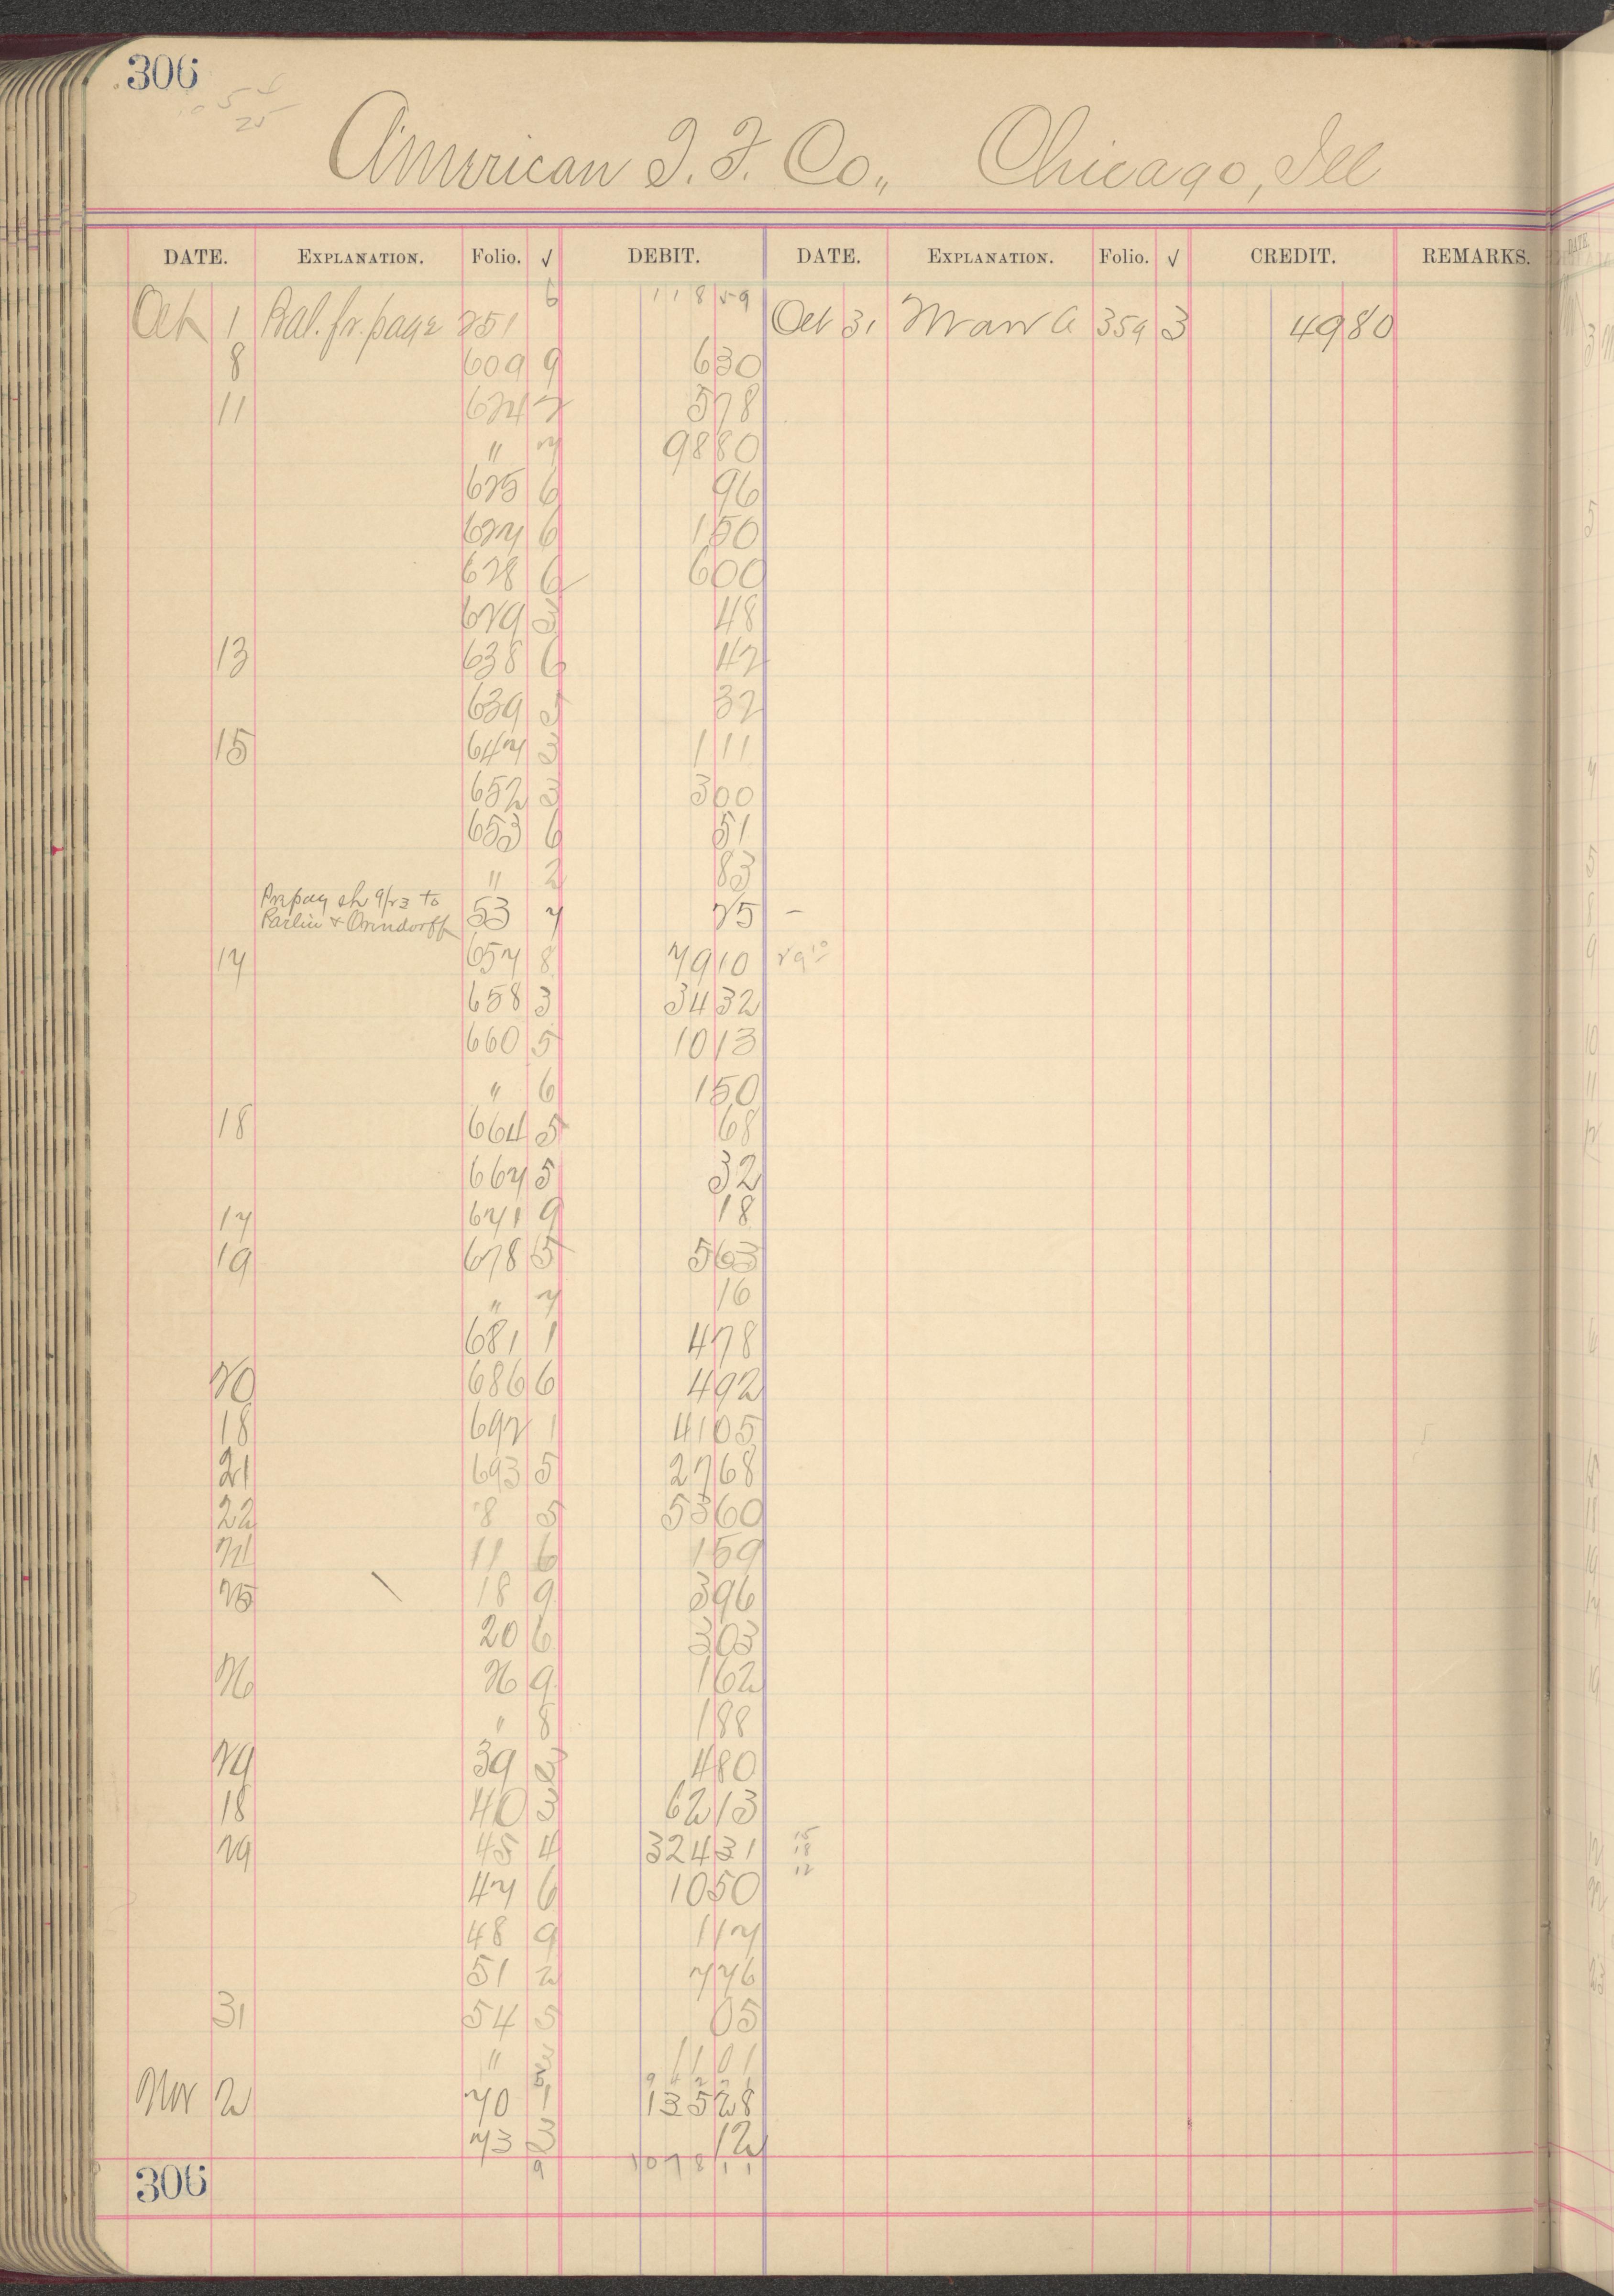 306
American I. F. Co., Chicago, Ill
DATE. EXPLANATION. Folio. √ DEBIT. DATE. EXPLANATION. Folio. √ CREDIT. REMARKS.
6 118 59
Oct 1 Bal. fr. page 251 Oct 31 359 3 49 80
8 609 9 6 30
11 624 2 5 78
" 7 98 80
625 6 96
627 6 1 50
628 6 6 00
629 3 48
13 638 6 42
639 5 32
15 647 3 1 11
652 3 3 00
653 6 51
" 2 83
Prepay ch 9/23 to
Parlin & Orendorff 53 7 25 –
17 657 8 79 10
658 3 34 32
660 5 10 13
" 6 1 50
18 664 5 68
667 5 32
17 671 9 18
19 678 5 5 63
" 7 16
681 1 4 78
20 686 6 4 92
18 692 1 41 05
21 693 5 27 68
22 8 5 53 60
24 11 6 1 59
25 18 9 3 96
20 6 3 03
26 26 9 1 62
" 8 1 88
29 39 3 4 80
18 40 3 62 13
29 45 4 324 31
15
18
12
47 6 10 50
48 9 1 17
51 2 7 76
31 54 5 05
" 3 11 01
Nov 2 70 1 135 28
73 3 12
9 1078 11
306